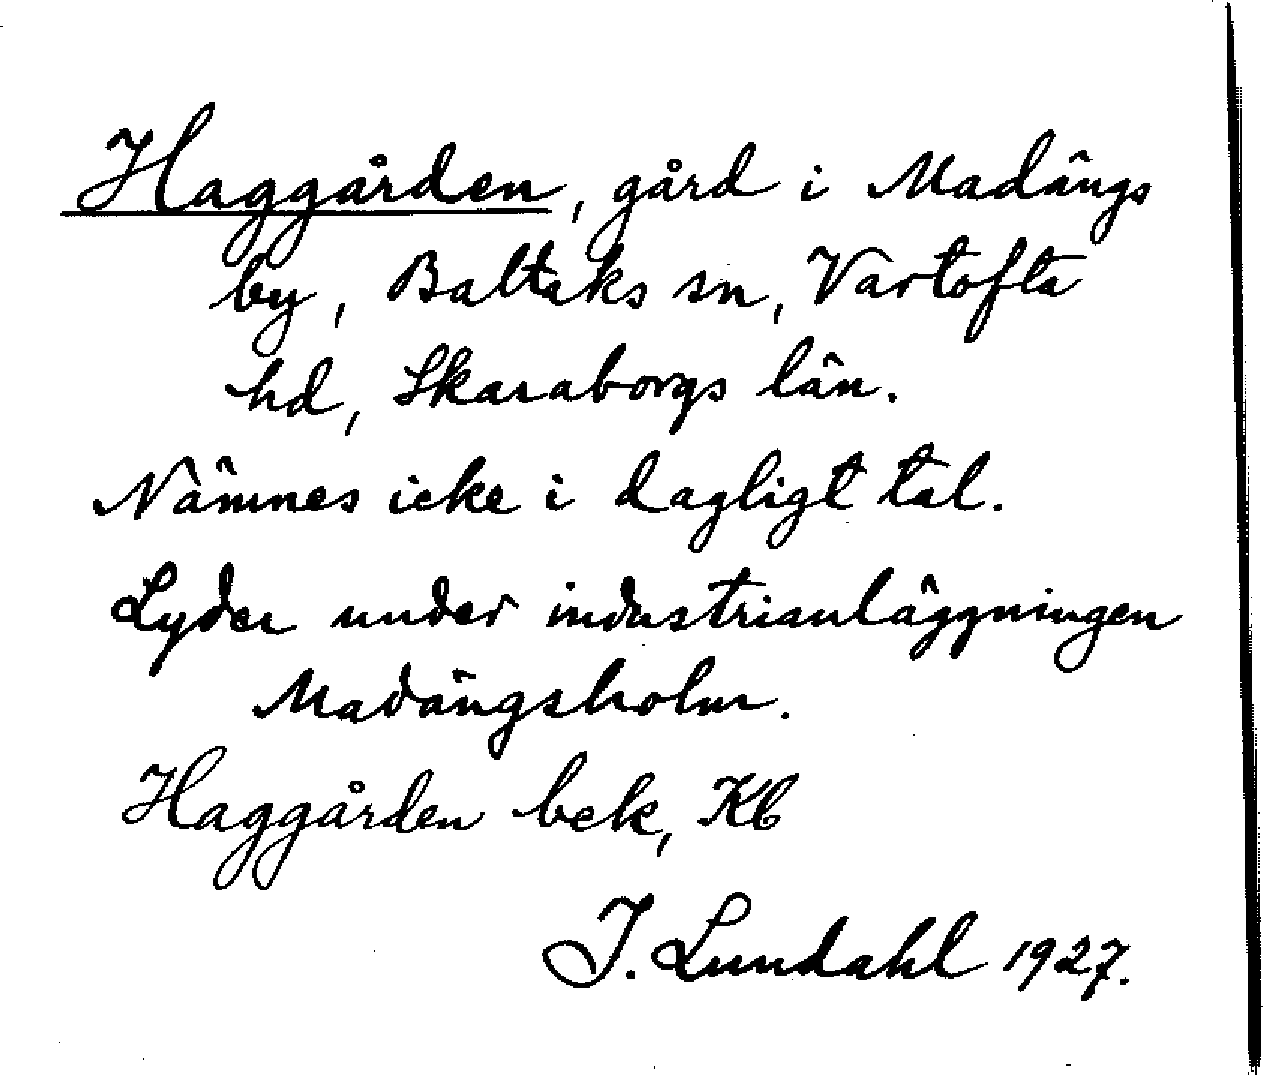 Haggården, gård i Madängs
by, Baltaks sn, Vartofta
hd, Skaraborgs län.
Nämnes icke i dagligt tal.
Lyder under industrianläggningen
Madängsholm.
Haggården bek, Kb
J. Lundahl 1927.